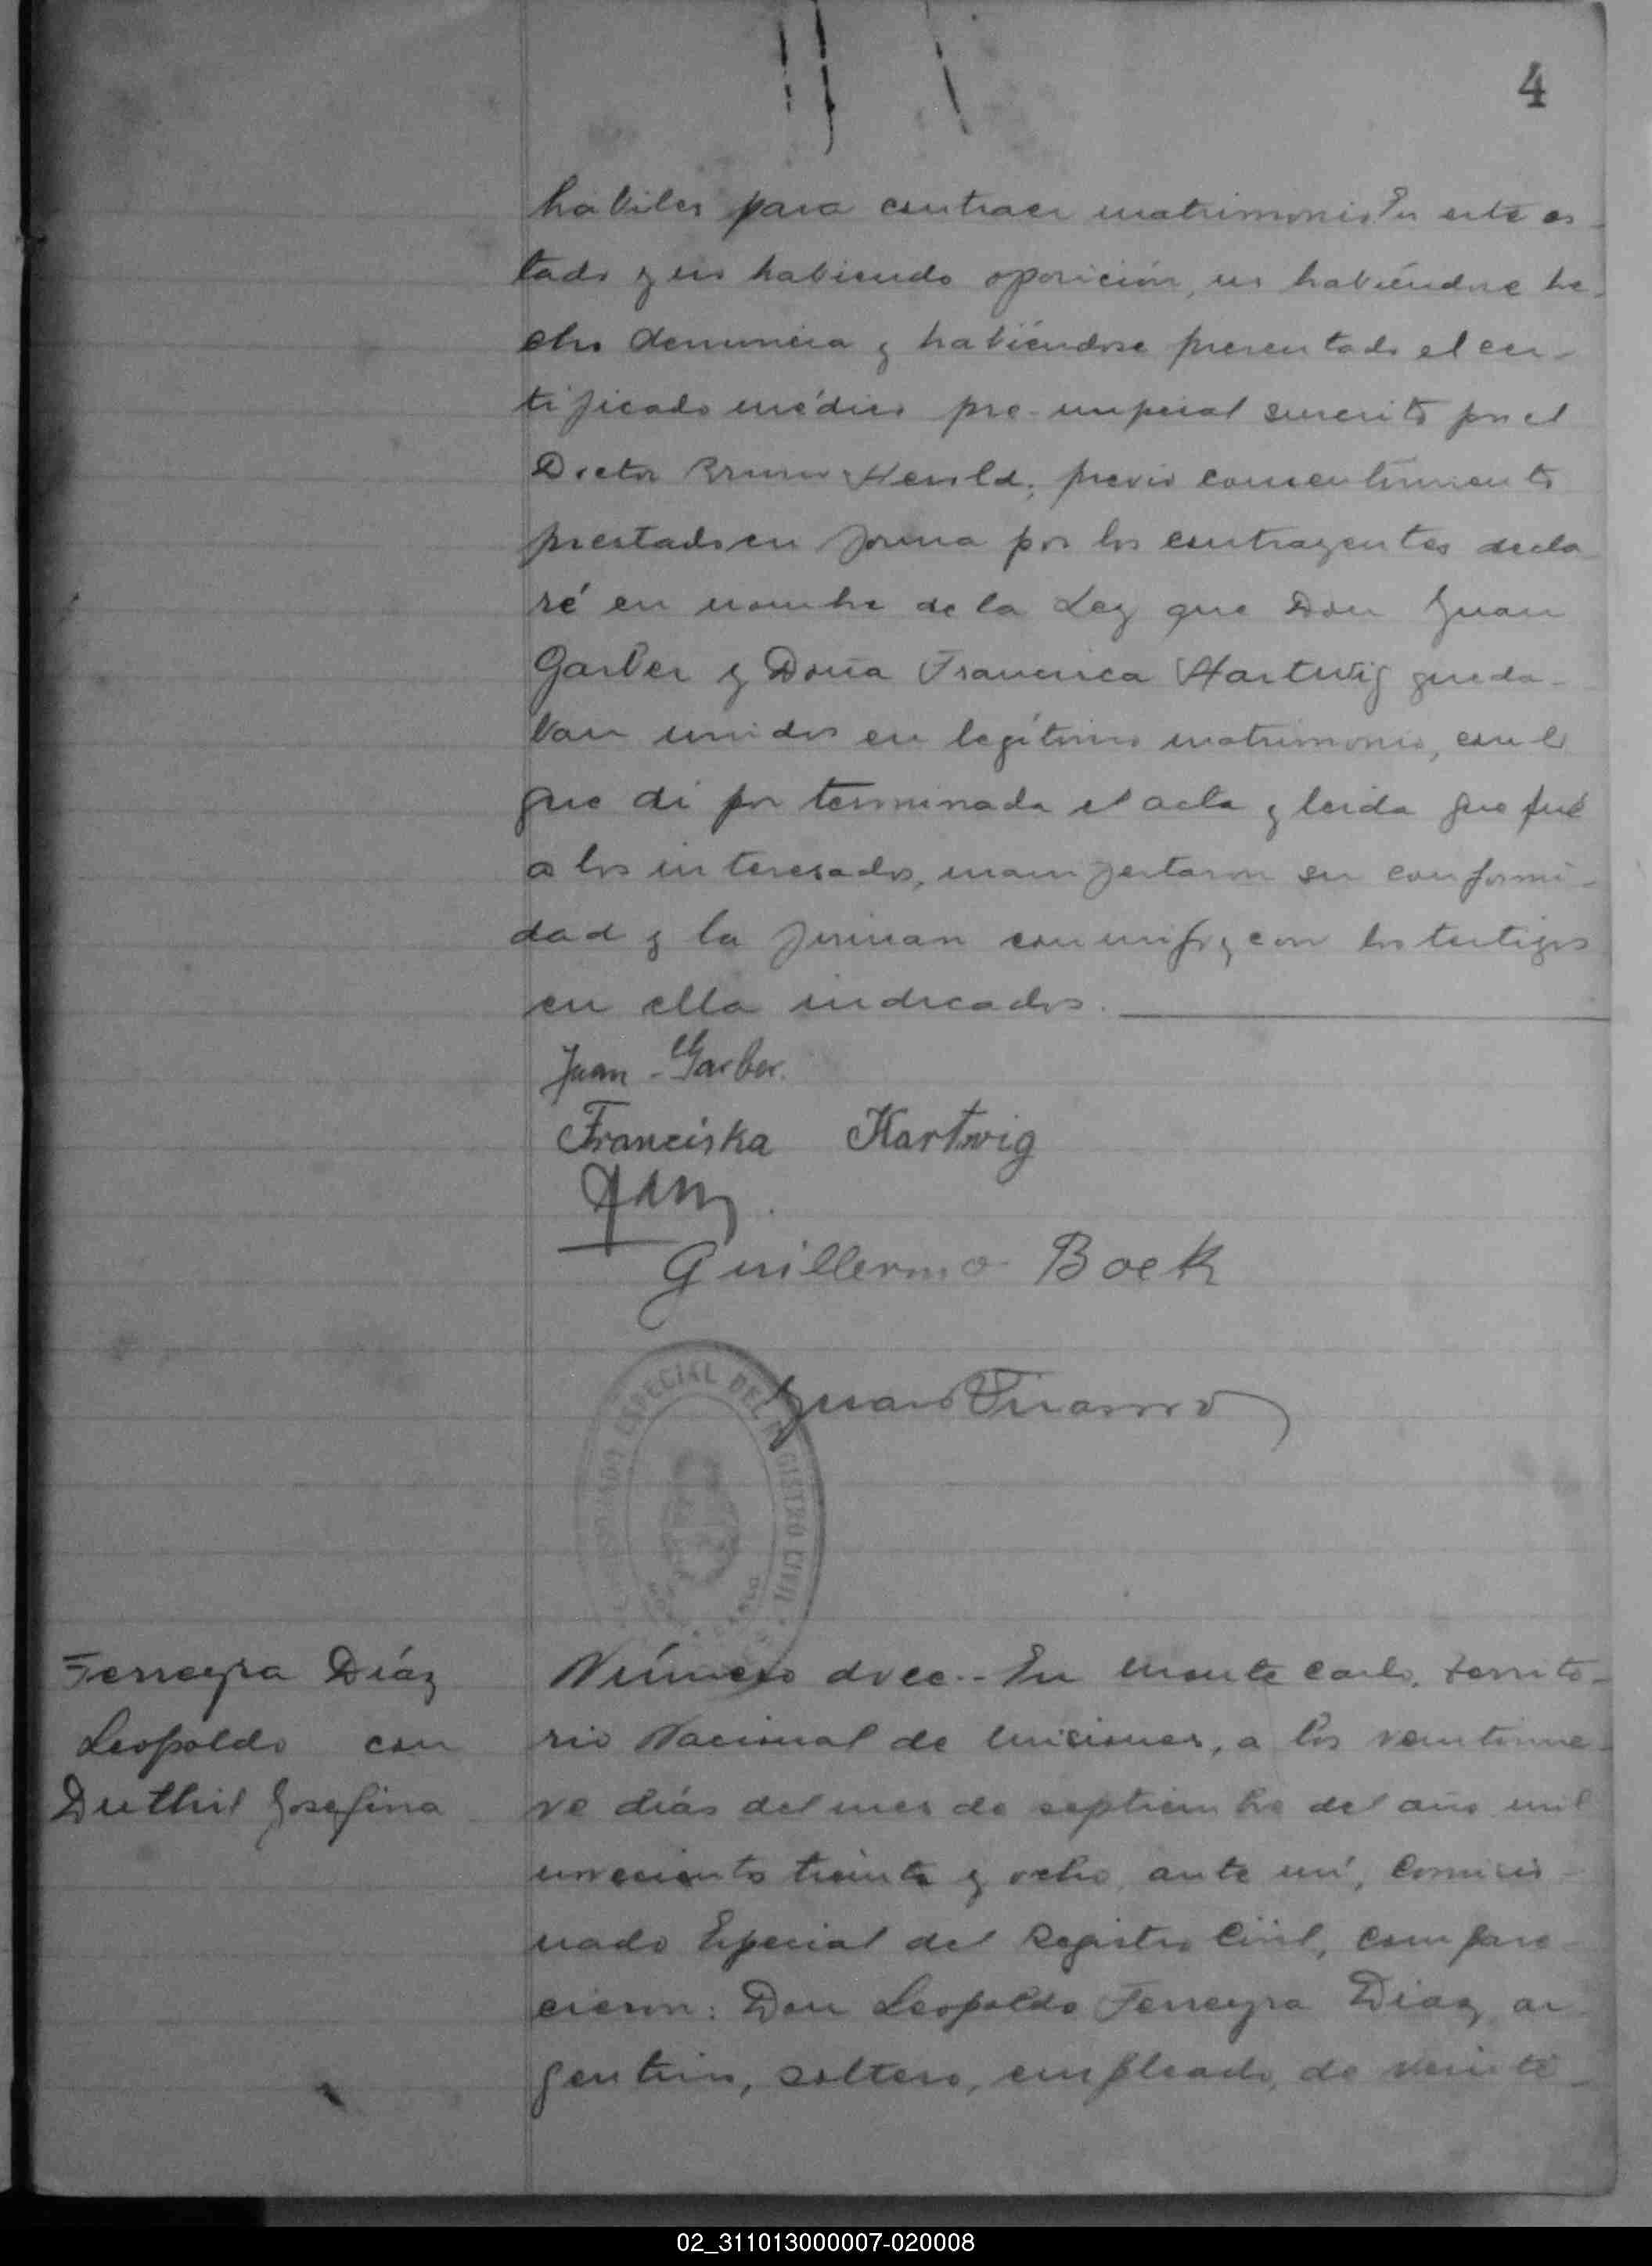 4
hábiles para contraer matrimonio. En este es-
tado y no habiendo oposición, no habiéndose he-
cho denuncia y habiéndose presentado el cer-
tificado médico pre-nupcial suscrito por el
Doctor Bruno Herold; previo consentimiento
prestado en forma por los contrayentes decla-
ré en nombre de la Ley que Don Juan
Garber y Doña Francisca Hartwig queda-
ban unidos en legítimo matrimonio, con lo
que di por terminada el acta y leida que fué
a los interesados, manifestaron su conformi-
dad y la firman conmigo y con los testigos
en ella indicados.
Juan Garber.
Franciska Hartwig
Guillermo Boek
Juan
ESPECIAL DEL REGISTRO CIVIL
Ferreyra Díaz
Leopoldo con
Duthil Josefina
Número doce.- En Monte Carlo, Territo-
rio Nacional de Misiones, a los veintinue-
ve días del mes de septiembre del año mil
novecientos treinta y ocho, ante mí, Comisio-
nado Especial del Registro Civil, compare-
cieron: Don Leopoldo Ferreyra Diaz, ar-
gentino, soltero, empleado, de veinte
02_311013000007-020008